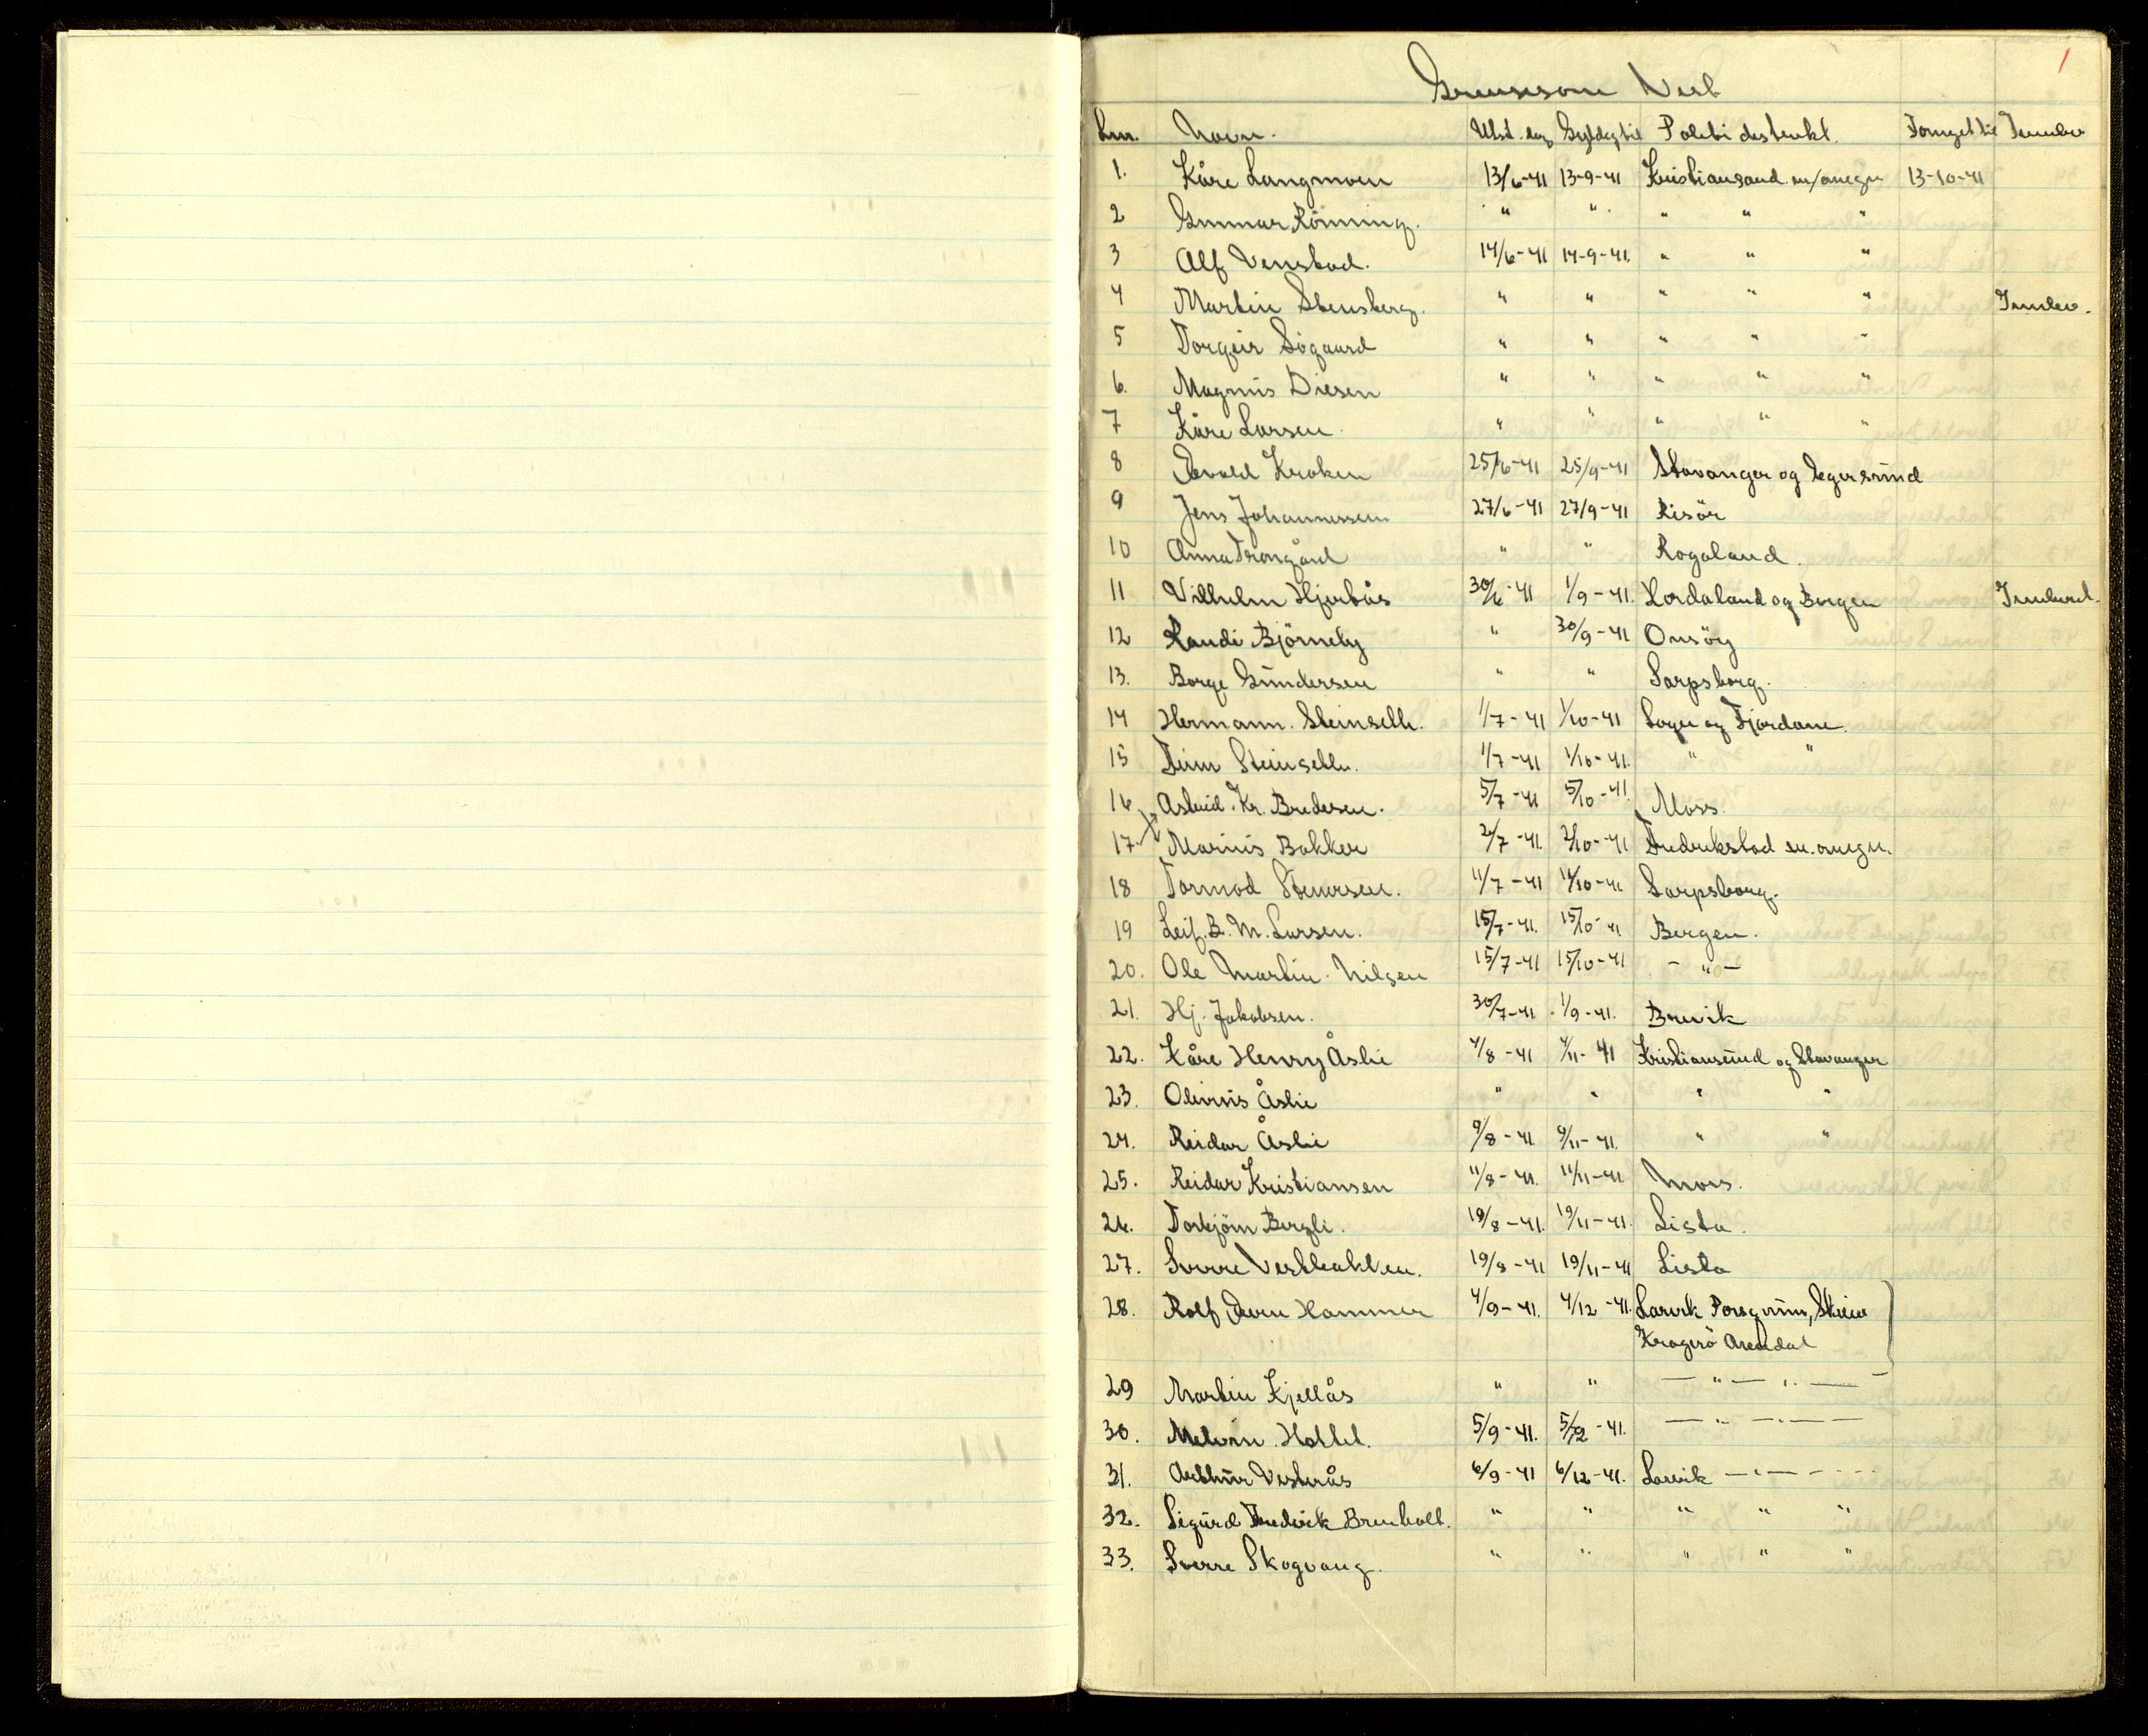 1
Grensesone Vest
Lnr. Navn. Utst. dag Gyldig til Politidistrikt. Fornyet til Innlev.
1. Kåre Langmoen 13/6-41 13-9-41 Kristiansand m/omegn 13-10-41
2 Gunnar Rönning. " " " " "
3 Alf Venstad. 14/6-41 14-9-41. " " "
4 Martin Stensberg. " " " " " Innlev.
5 Torgeir Sögaard " " " " "
6. Magnus Diesen " " " " "
7 Kåre Larsen. " " " " "
8 Edvald Kroken 25/6-41 25/9-41 Stavanger og Egersund
9 Jens Johannessen 27/6-41 27/9-41 Risör
10 Anna Trongård " " Rogaland.
11 Vilhelm Hjertås 30/6-41 1/9-41. Hordaland og Bergen Innlevd.
12 Randi Björneby " 30/9-41 Onsöy
13. Borge Gundersen " " Sarpsborg.
14 Hermann. Steinseth. 1/7-41 1/10-41 Sogn og Fjordane.
15 Finn Steinseth. 1/7-41 1/10-41. " "
16 Astrid. Kr. Bredesen. 5/7-41 5/10-41. Moss.
17. Marius Bakker 2/7-41. 2/10-41 Fredrikstad m. omegn.
18 Tormod Stenersen. 11/7-41 11/10-41 Sarpsborg.
19 Leif. B. M. Larsen. 15/7-41. 15/10-41 Bergen.
20. Ole Martin. Nilsen 15/7-41 15/10-41 - " -
21. Hj. Jakobsen. 30/7-41 1/9-41. Brevik
22. Kåre Henry Åslie 4/8-41 4/11-41 Kristiansund og Stavanger
23. Olivius Åslie " " " "
24. Reidar Åslie 9/8-41 9/11-41. " "
25. Reidar Kristiansen 11/8-41. 11/11-41 Moss.
26. Torbjörn Bergli. 19/8-41. 19/11-41. Lista.
27. Sverre Vestbakken. 19/8-41 19/11-41 Lista
28. Rolf Hammer 4/9-41. 4/12-41. Larvik Porsgrunn, Skien
Kragerö Arendal
29 Martin Kjellås " " — " — " —
30. Hottel. 5/9-41. 5/12-41. — " — " —
31. Arthur Vesterås 6/9-41 6/12-41. Larvik — " — - - -
32. Sigurd Fredrik Brenholt. " " " " "
33. Sverre Skogvang. " " " " "